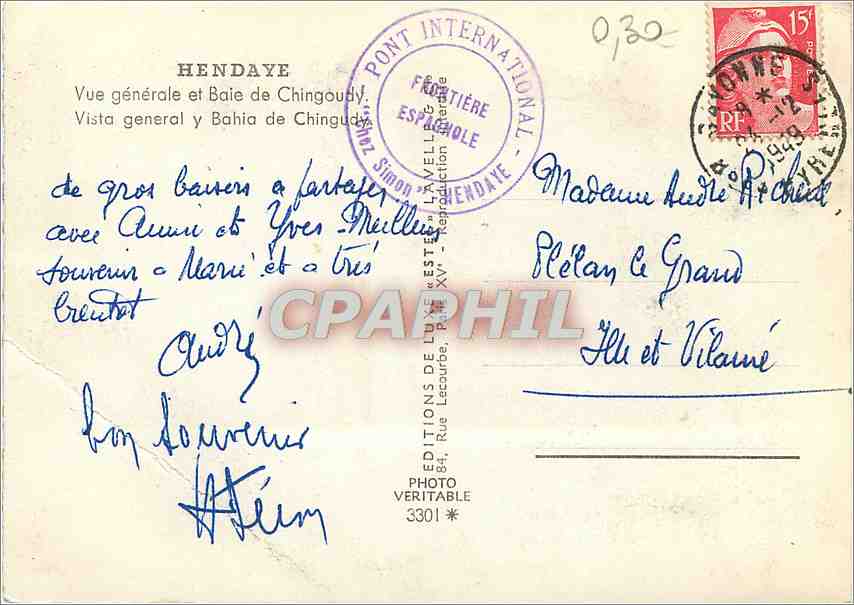 HENDAYE
Vue générale et Baie de Chingoudy.
Vista general y Bahia de Chingudy.
PONT INTERNATIONAL -
FRONTIÈRE
ESPAGNOLE
"Chez Simon" HENDAYE
0,30
15f
POSTES
RF
BAYONNE
9 *
-12
1949
PYRENEES
de gros baisers a partager
avec Annie et Yves - Meilleur
souvenir a Marié et a très
bientot
André
bon souvenir
EDITIONS DE LUXE «ESTEL» LAVELLE &
84, Rue Lecourbe, Paris XV° - Reproduction Interdite
PHOTO
VERITABLE
3301 *
Madame André
Plélan le Grand
Ille et Vilaine
CPAPHIL